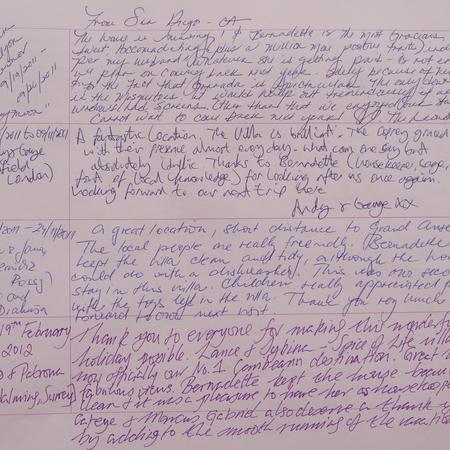 From San Diego - CA
The house is Amazing! & Bernadette is the most Gracious,
Sweet, Accommodating (plus a million more positive traits) indi
Per my husband whatever she is getting paid - Is not en
we plan on coming back next year - Solely because of he
the fact that Grenada is Approachable. The only
is the Mosquitoes. It would help out tremendously if
windows had Screens. Other than that we enjoyed our sta
Cannot wait to come back next year!
"
2011 to 09/11/2011
George
field
London)
A fantastic location. The Villa is brilliant. The Carey
with their presence almost every day - what can one say but
absolutely idyllic. Thanks to Bernadette (housekeeper, sage,
font of local knowledge) for looking after us once again.
Looking forward to our next trip here
Andy & George xx
2011 - 24/11/2011
& Jany
and
A great location, short distance to Grand Anse
The local people are really friendly. (Bernadette
kept the villa clean and tidy, although the hou
could do with a dishwasher). This was our sec
stay in this villa. Children really appreciated
with the toys left in the villa. Thank you very much
forward to our next visit.
19th February
2012
& Patrona
Surrey)
Thank you to everyone for making this wonderful
holiday possible. Lance & Sybina - Spice of Life villa
now officially our No. 1 Caribbean destination. Great
fabulous views. Bernadette kept the house beau
clean & it was a pleasure to have her as housekeeper
& Marcus Gabriel also deserve a thank
by adding to the smooth running of the